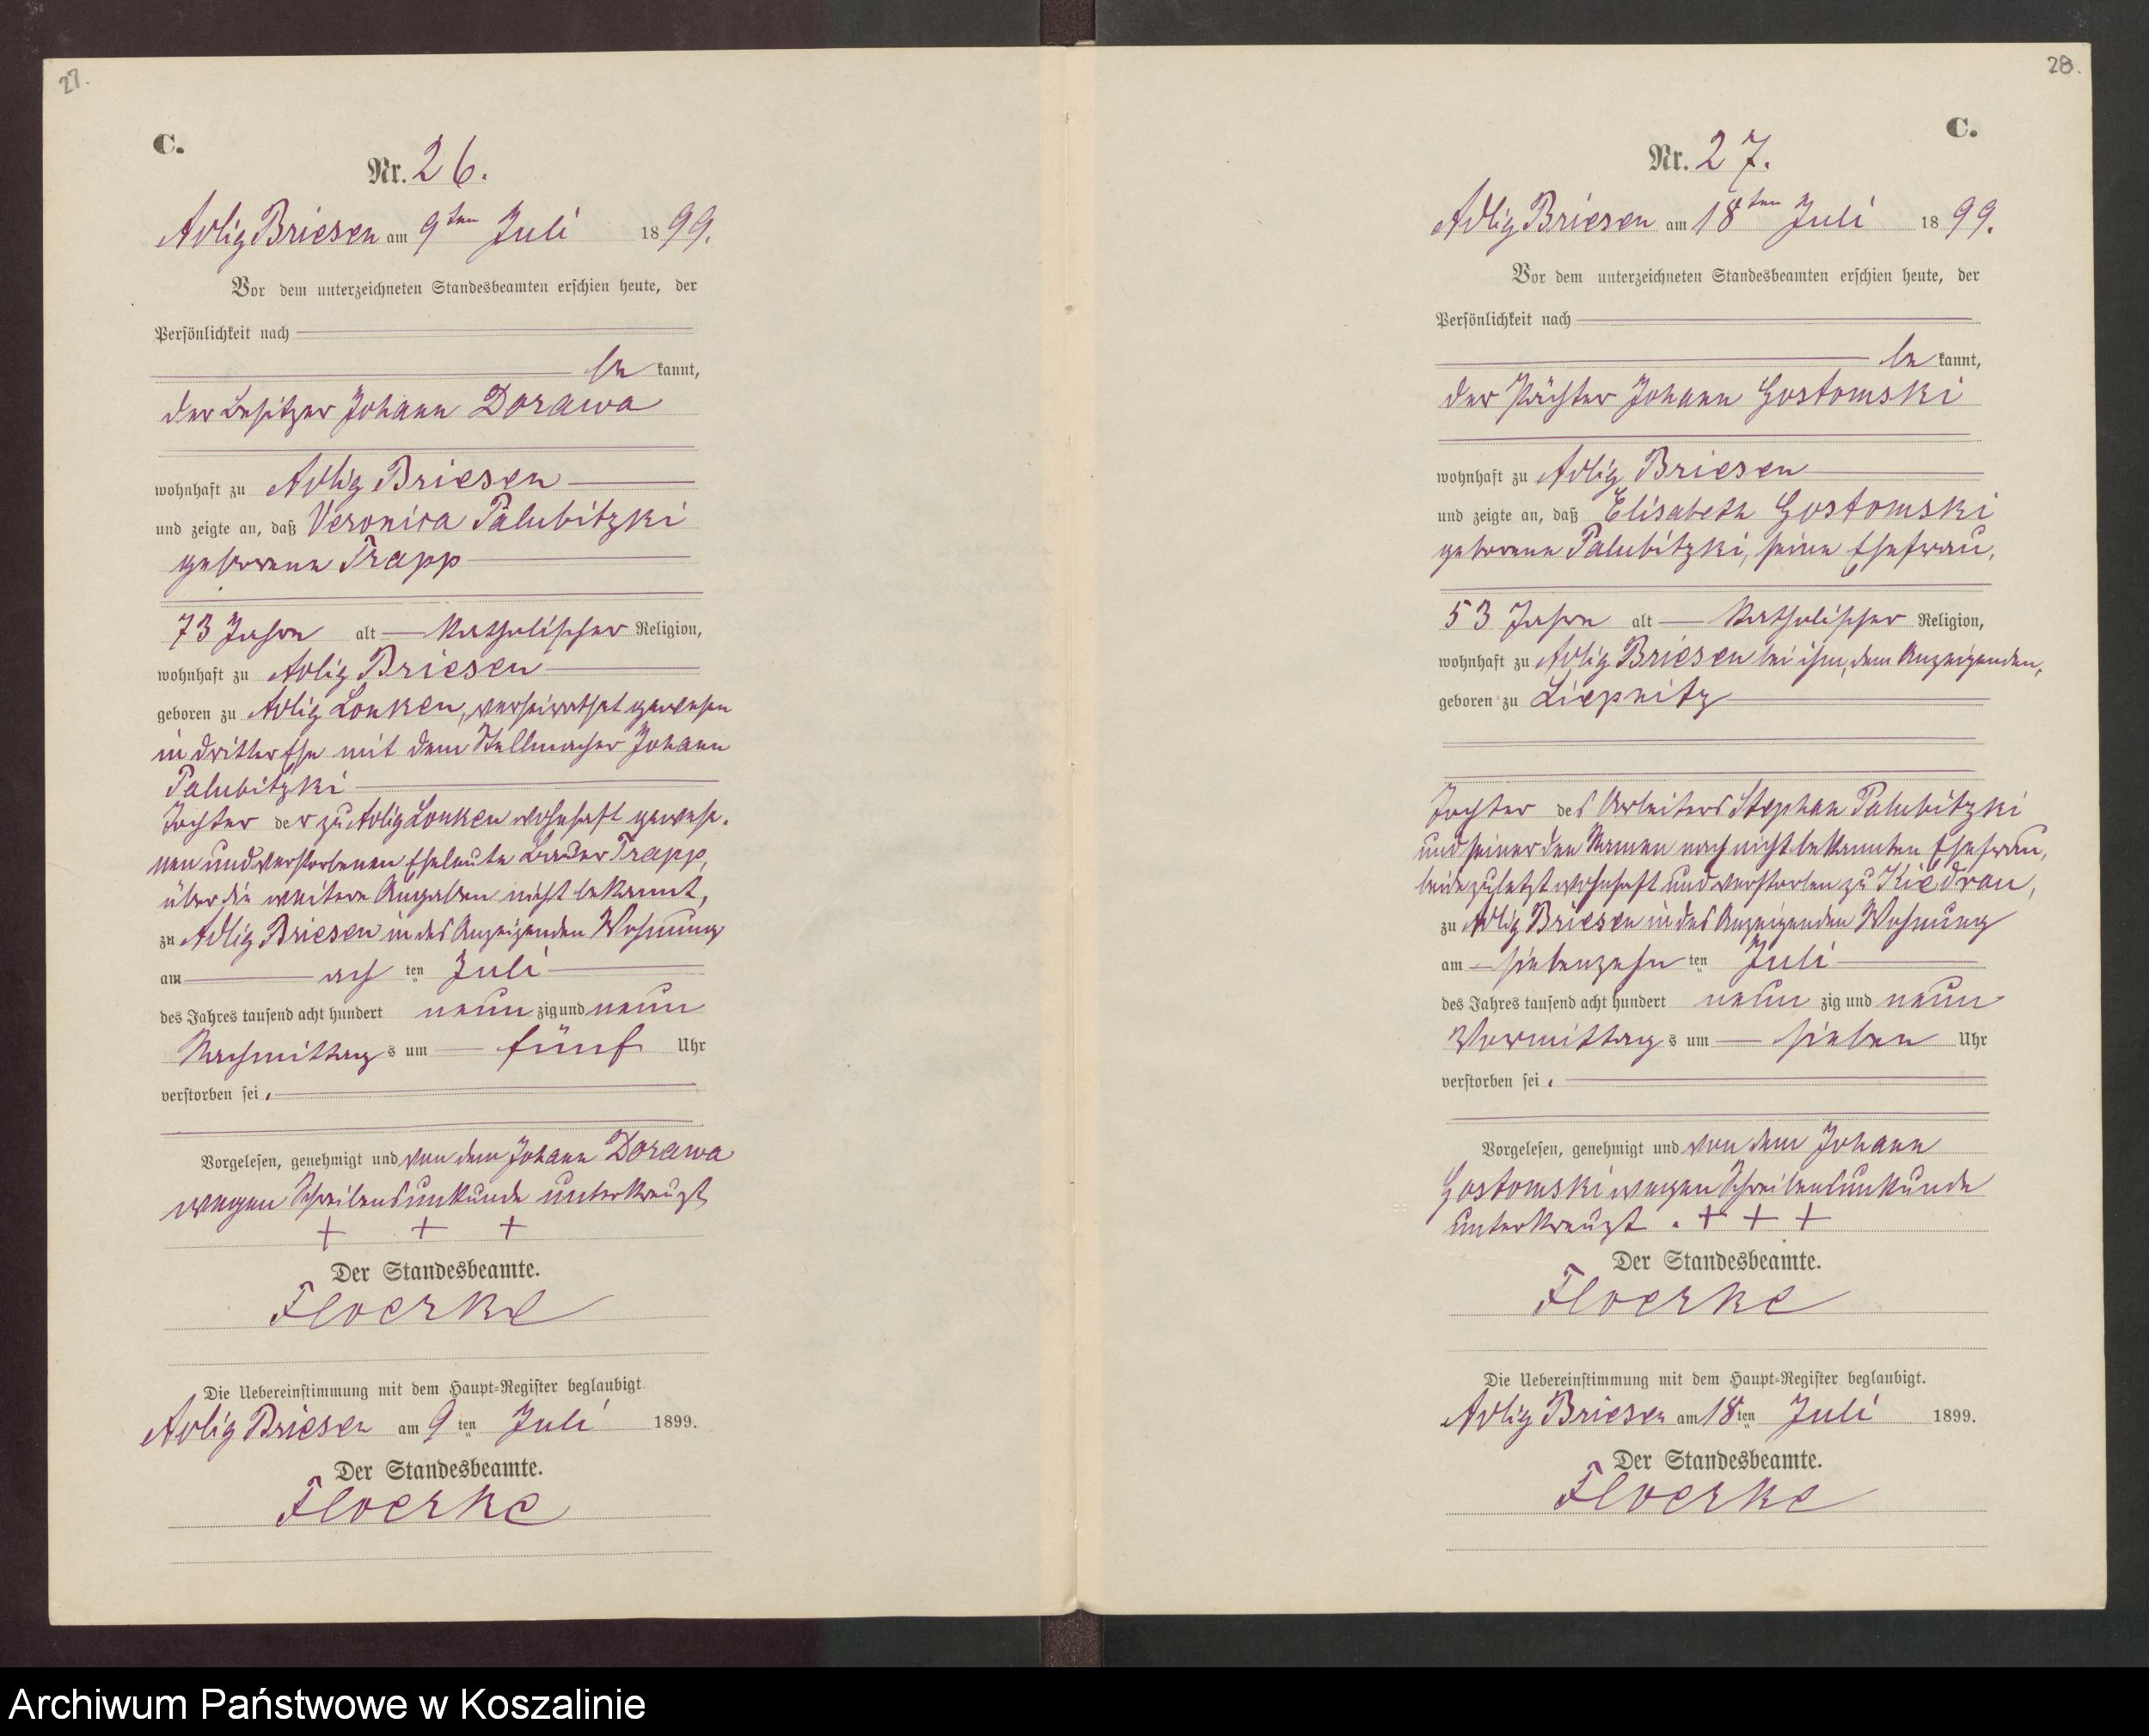 27.
C.
Nr. 26.
Adlig Briesen am 9ten Juli 1899.
Vor dem unterzeichneten Standesbeamten erschien heute, der
Persönlichkeit nach
be kannt,
der Besitzer Johann Dorawa
wohnhaft zu Adlig Briesen
und zeigte an, daß Veronica Palubitzki
geborene Trapp
73 Jahre alt katholischer Religion,
wohnhaft zu Adlig Briesen
geboren zu Adlig Lonken, verheirathet gewesen
in dritter Ehe mit dem Stellmacher Johann
Palubitzki
Tochter der zu Adlig Lonken wohnhaft gewese-
nen und verstorbenen Eheleute Bauer Trapp,
über die weitere Angaben nicht bekannt,
zu Adlig Briesen in des Anzeigenden Wohnung
am ach ten Juli
des Jahres tausend acht hundert neun zig und neun
Nachmittag s um fünf Uhr
verstorben sei.
Vorgelesen, genehmigt und von dem Johann Dorawa
wegen Schreibensunkunde unterkreuzt
+ + +
Der Standesbeamte.
Floerke
Die Uebereinstimmung mit dem Haupt-Register beglaubigt.
Adlig Briesen am 9ten Juli 1899.
Der Standesbeamte.
Floerke
28.
C.
Nr. 27.
Adlig Briesen am 18ten Juli 1899.
Vor dem unterzeichneten Standesbeamten erschien heute, der
Persönlichkeit nach
be kannt,
der Pächter Johann Gostomski
wohnhaft zu Adlig Briesen
und zeigte an, daß Elisabeth Gostomski
geborene Palubitzki, seine Ehefrau,
53 Jahre alt katholischer Religion,
wohnhaft zu Adlig Briesen bei ihm, dem Anzeigenden,
geboren zu Liepnitz
Tochter des Arbeiters Stephan Palubitzki
und seiner den Namen nach nicht bekannten Ehefrau,
beide zuletzt wohnhaft und verstorben zu Kiedrau,
zu Adlig Briesen in des Anzeigenden Wohnung
am siebenzehn ten Juli
des Jahres tausend acht hundert neun zig und neun
Vormittag s um sieben Uhr
verstorben sei.
Vorgelesen, genehmigt und von dem Johann
Gostomski wegen Schreibensunkunde
unterkreuzt. + + +
Der Standesbeamte.
Floerke
Die Uebereinstimmung mit dem Haupt-Register beglaubigt.
Adlig Briesen am 18ten Juli 1899.
Der Standesbeamte.
Floerke
Archiwum Państwowe w Koszalinie